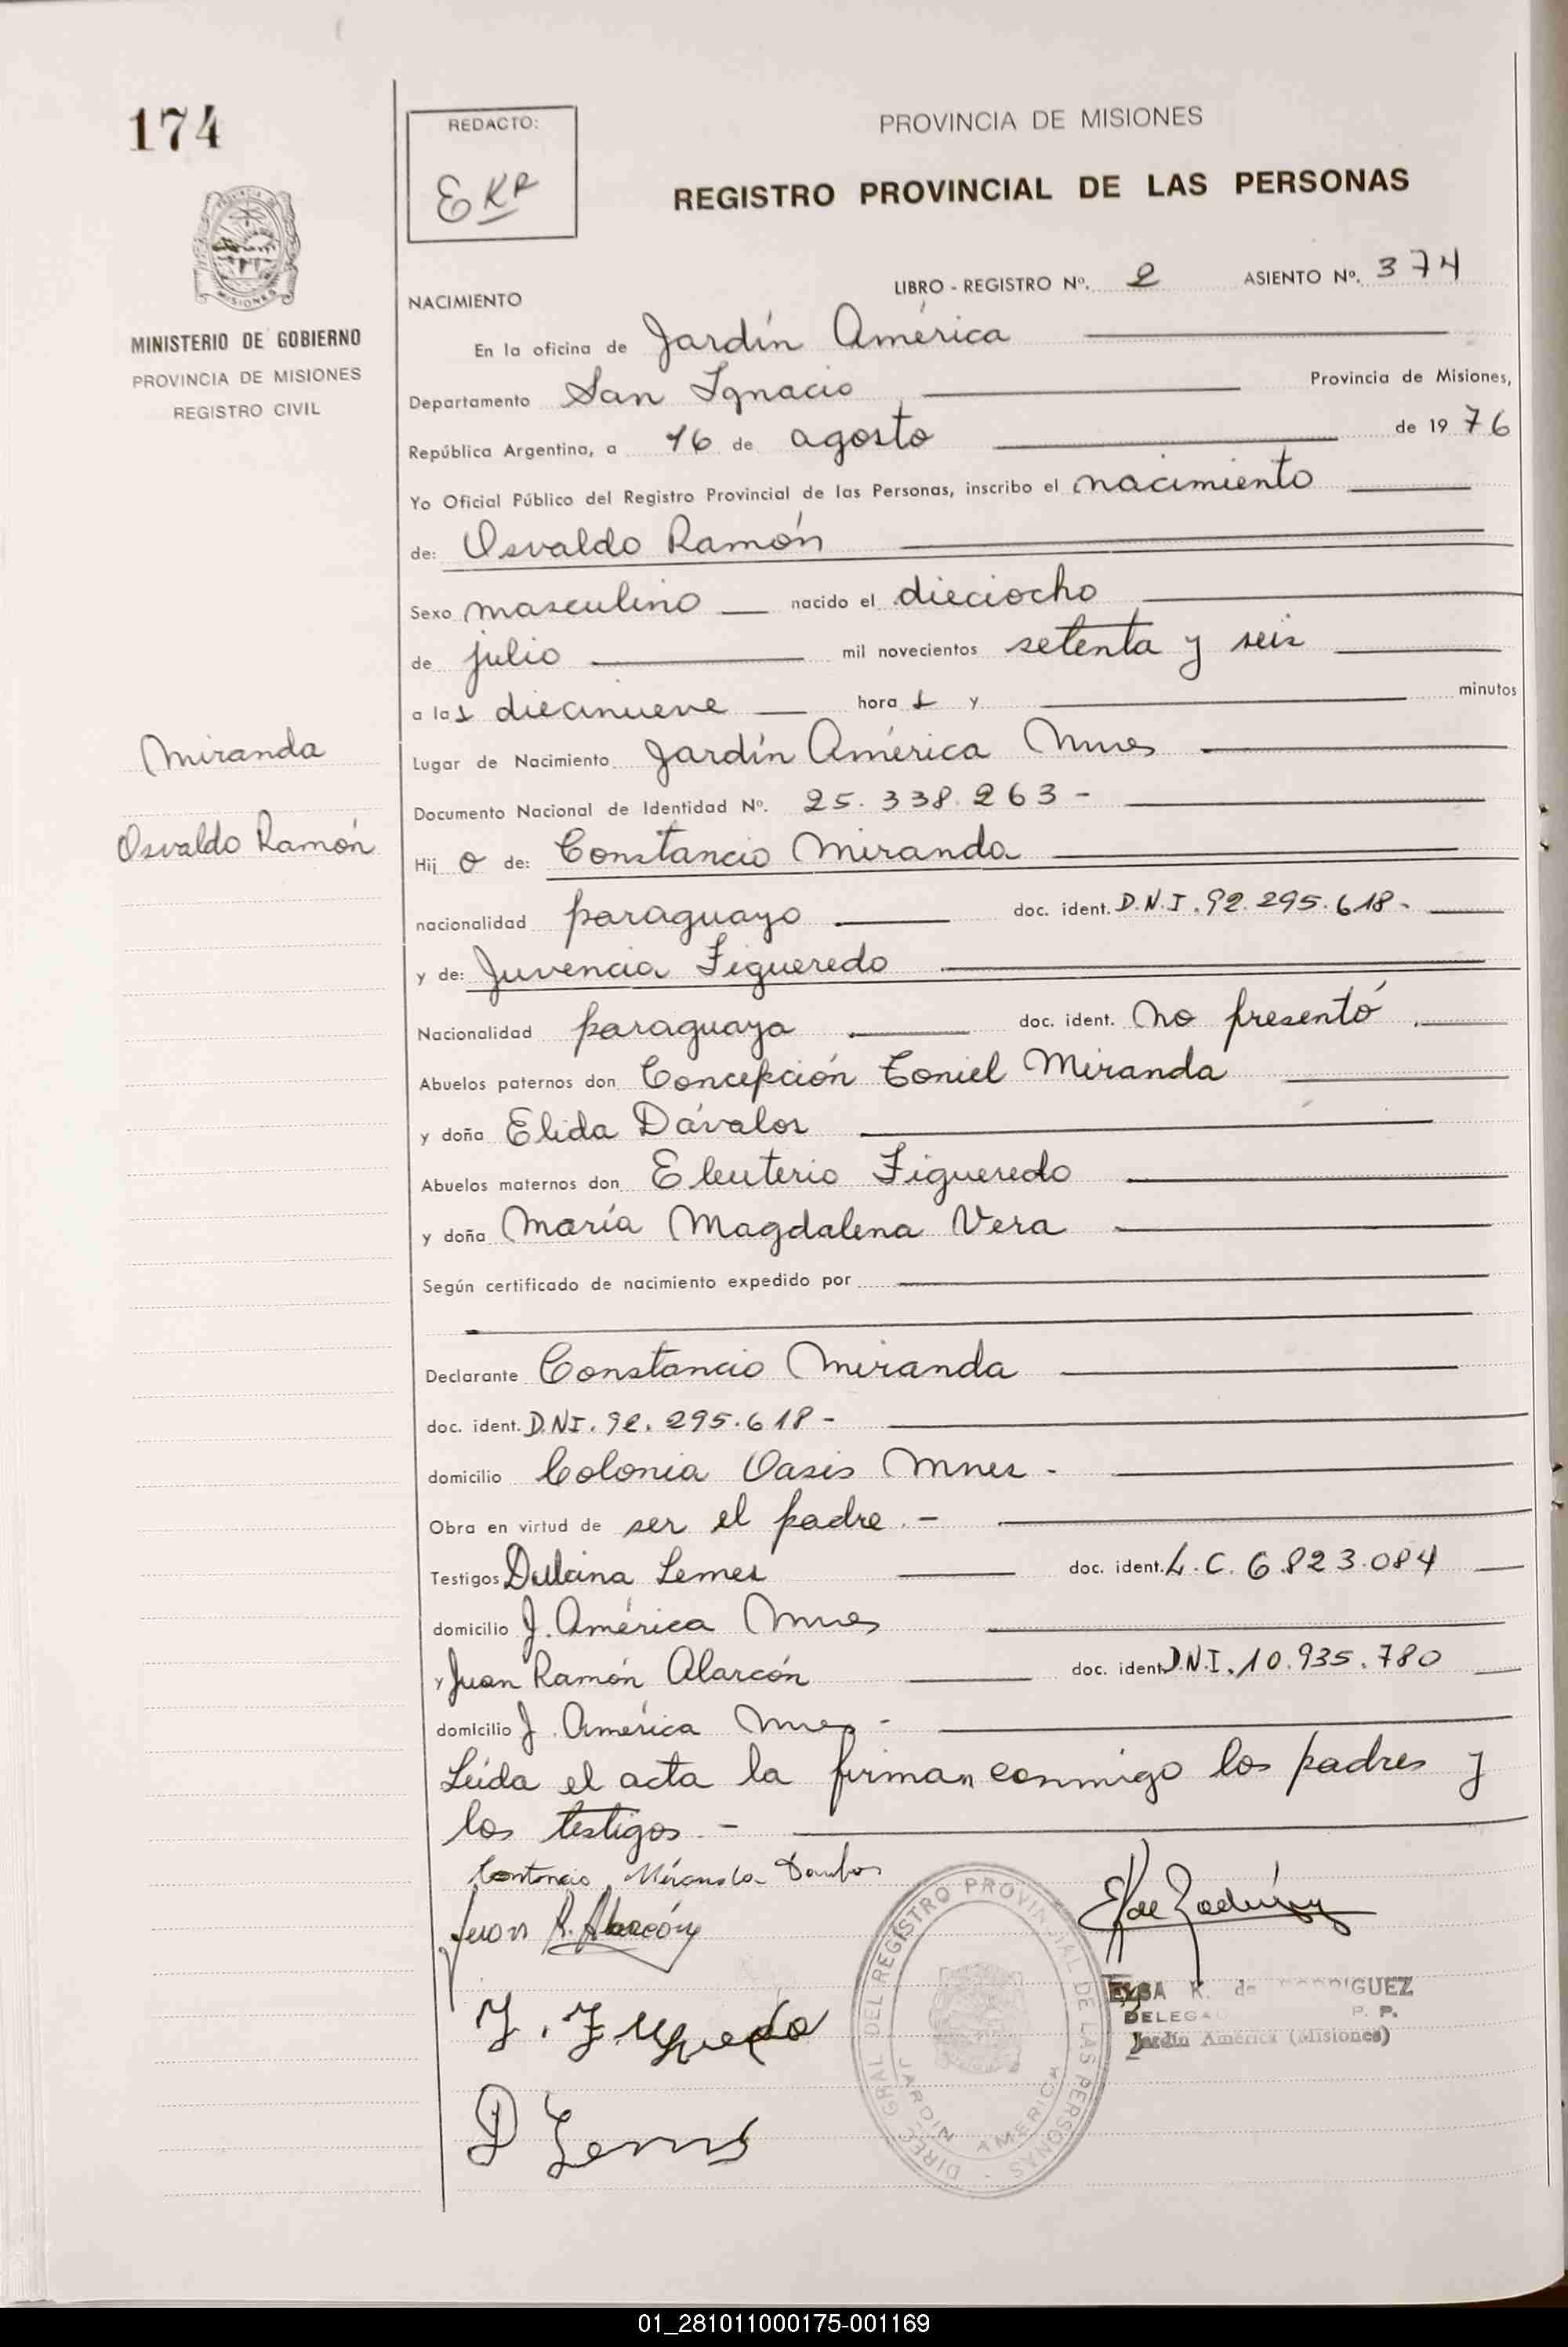 174
REDACTO:
EKR
PROVINCIA DE MISIONES
REGISTRO PROVINCIAL DE LAS PERSONAS
MINISTERIO DE GOBIERNO
PROVINCIA DE MISIONES
REGISTRO CIVIL
Miranda
Osvaldo Ramón
LIBRO - REGISTRO Nº. 2 ASIENTO Nº. 374
NACIMIENTO
En la oficina de Jardín América
Departamento San Ignacio Provincia de Misiones,
República Argentina, a 16 de agosto de 1976
Yo Oficial Público del Registro Provincial de las Personas, inscribo el nacimiento
de: Osvaldo Ramón
Sexo masculino nacido el dieciocho
de julio mil novecientos setenta y seis
a las diecinueve horas y minutos
Lugar de Nacimiento Jardín América Mnes
Documento Nacional de Identidad Nº. 25.338.263-
Hij o de: Constancio Miranda
nacionalidad paraguayo doc. ident. D.N.I. 92.295.618.
y de: Juvencia Figueredo
Nacionalidad paraguaya doc. ident. no presentó
Abuelos paternos don Concepción Toniel Miranda
y doña Elida Dávalos
Abuelos maternos don Eleuterio Figueredo
y doña María Magdalena Vera
Según certificado de nacimiento expedido por
Declarante Constancio Miranda
doc. ident. D.N.I. 92.295.618-
domicilio Colonia Oasis Mnes.
Obra en virtud de ser el padre.-
Testigos Dulcina Lemes doc. ident. L.C. 6.823.084
domicilio J. América Mnes
y Juan Ramón Alarcón doc. ident. D.N.I. 10.935.780
domicilio J. América Mnes-
Leída el acta la firman conmigo los padres y
los testigos.-
Miranda
Juan R. Alarcón
D Lemes
DIREC. GRAL DEL REGISTRO PROVINCIAL DE LAS PERSONAS
JARDIN AMERICA
ELSA K. de RODRIGUEZ
Jardín América (Misiones)
01_281011000175-001169